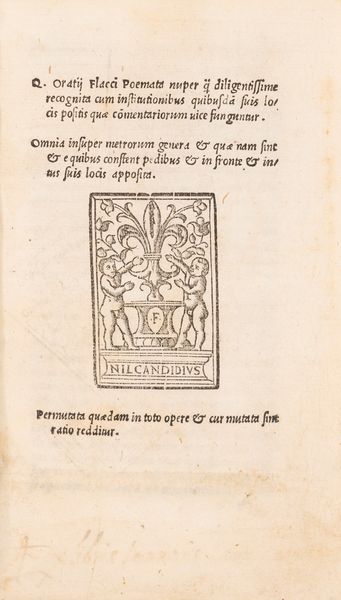 Q. Oratij Flacci Poemata nuper q̃ diligentissime
recognita cum institutionibus quibusdã suis lo/
cis positis quæ cõmentariorum uice funguntur.
Omnia insuper metrorum genera & quæ nam sint
& e quibus constent pedibus & in fronte & in/
tus suis locis apposita.
F
NIL CANDIDIVS
Permutata quædam in toto opere & cur mutata sint
ratio redditur.